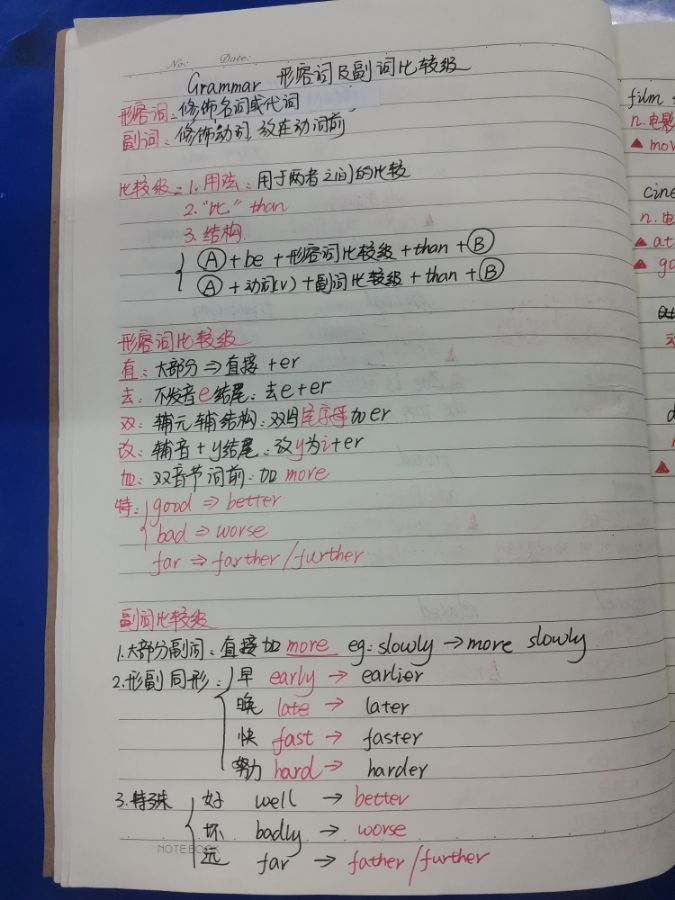 No: Date:
Grammar 形容词及副词比较级
形容词:修饰名词或代词
副词:修饰动词,放在动词前
比较级:1.用法:用于两者之间的比较
2."比" than
3.结构
{ Ⓐ+be+形容词比较级+than+Ⓑ
Ⓐ+动词(v)+副词比较级+than+Ⓑ
形容词比较级
直:大部分⇒直接+er
去:不发音e结尾:去e+er
双:辅元辅结构:双写尾字母加er
改:辅音+y结尾:改y为i+er
加:双音节词前:加 more
特:{ good ⇒ better
bad ⇒ worse
far ⇒ farther/further
副词比较级
1.大部分副词:直接加 more eg: slowly → more slowly
2.形副同形:{ 早 early → earlier
晚 late → later
快 fast → faster
努力 hard → harder
3.特殊 { 好 well → better
坏 badly → worse
NOTEBOOK
远 far → father/further
film
n.电影
▲ mov
cine
n.电
▲ at
▲ ga